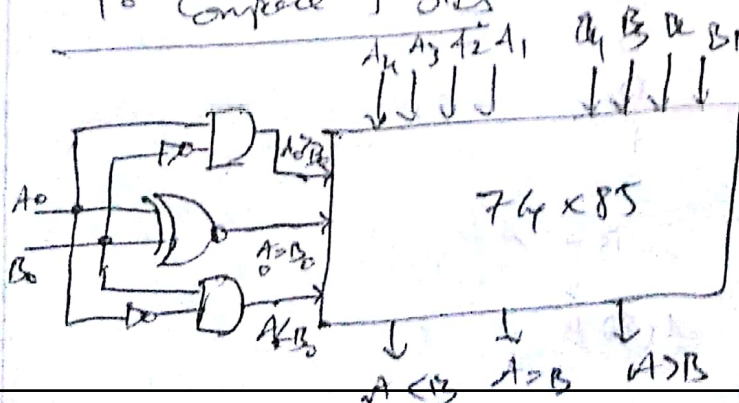 To compare 5 bits
A4 A3 A2 A1 B4 B3 B2 B1
A0>B0
A0
74x85
A0=B0
B0
A<B0
A<B A=B A>B